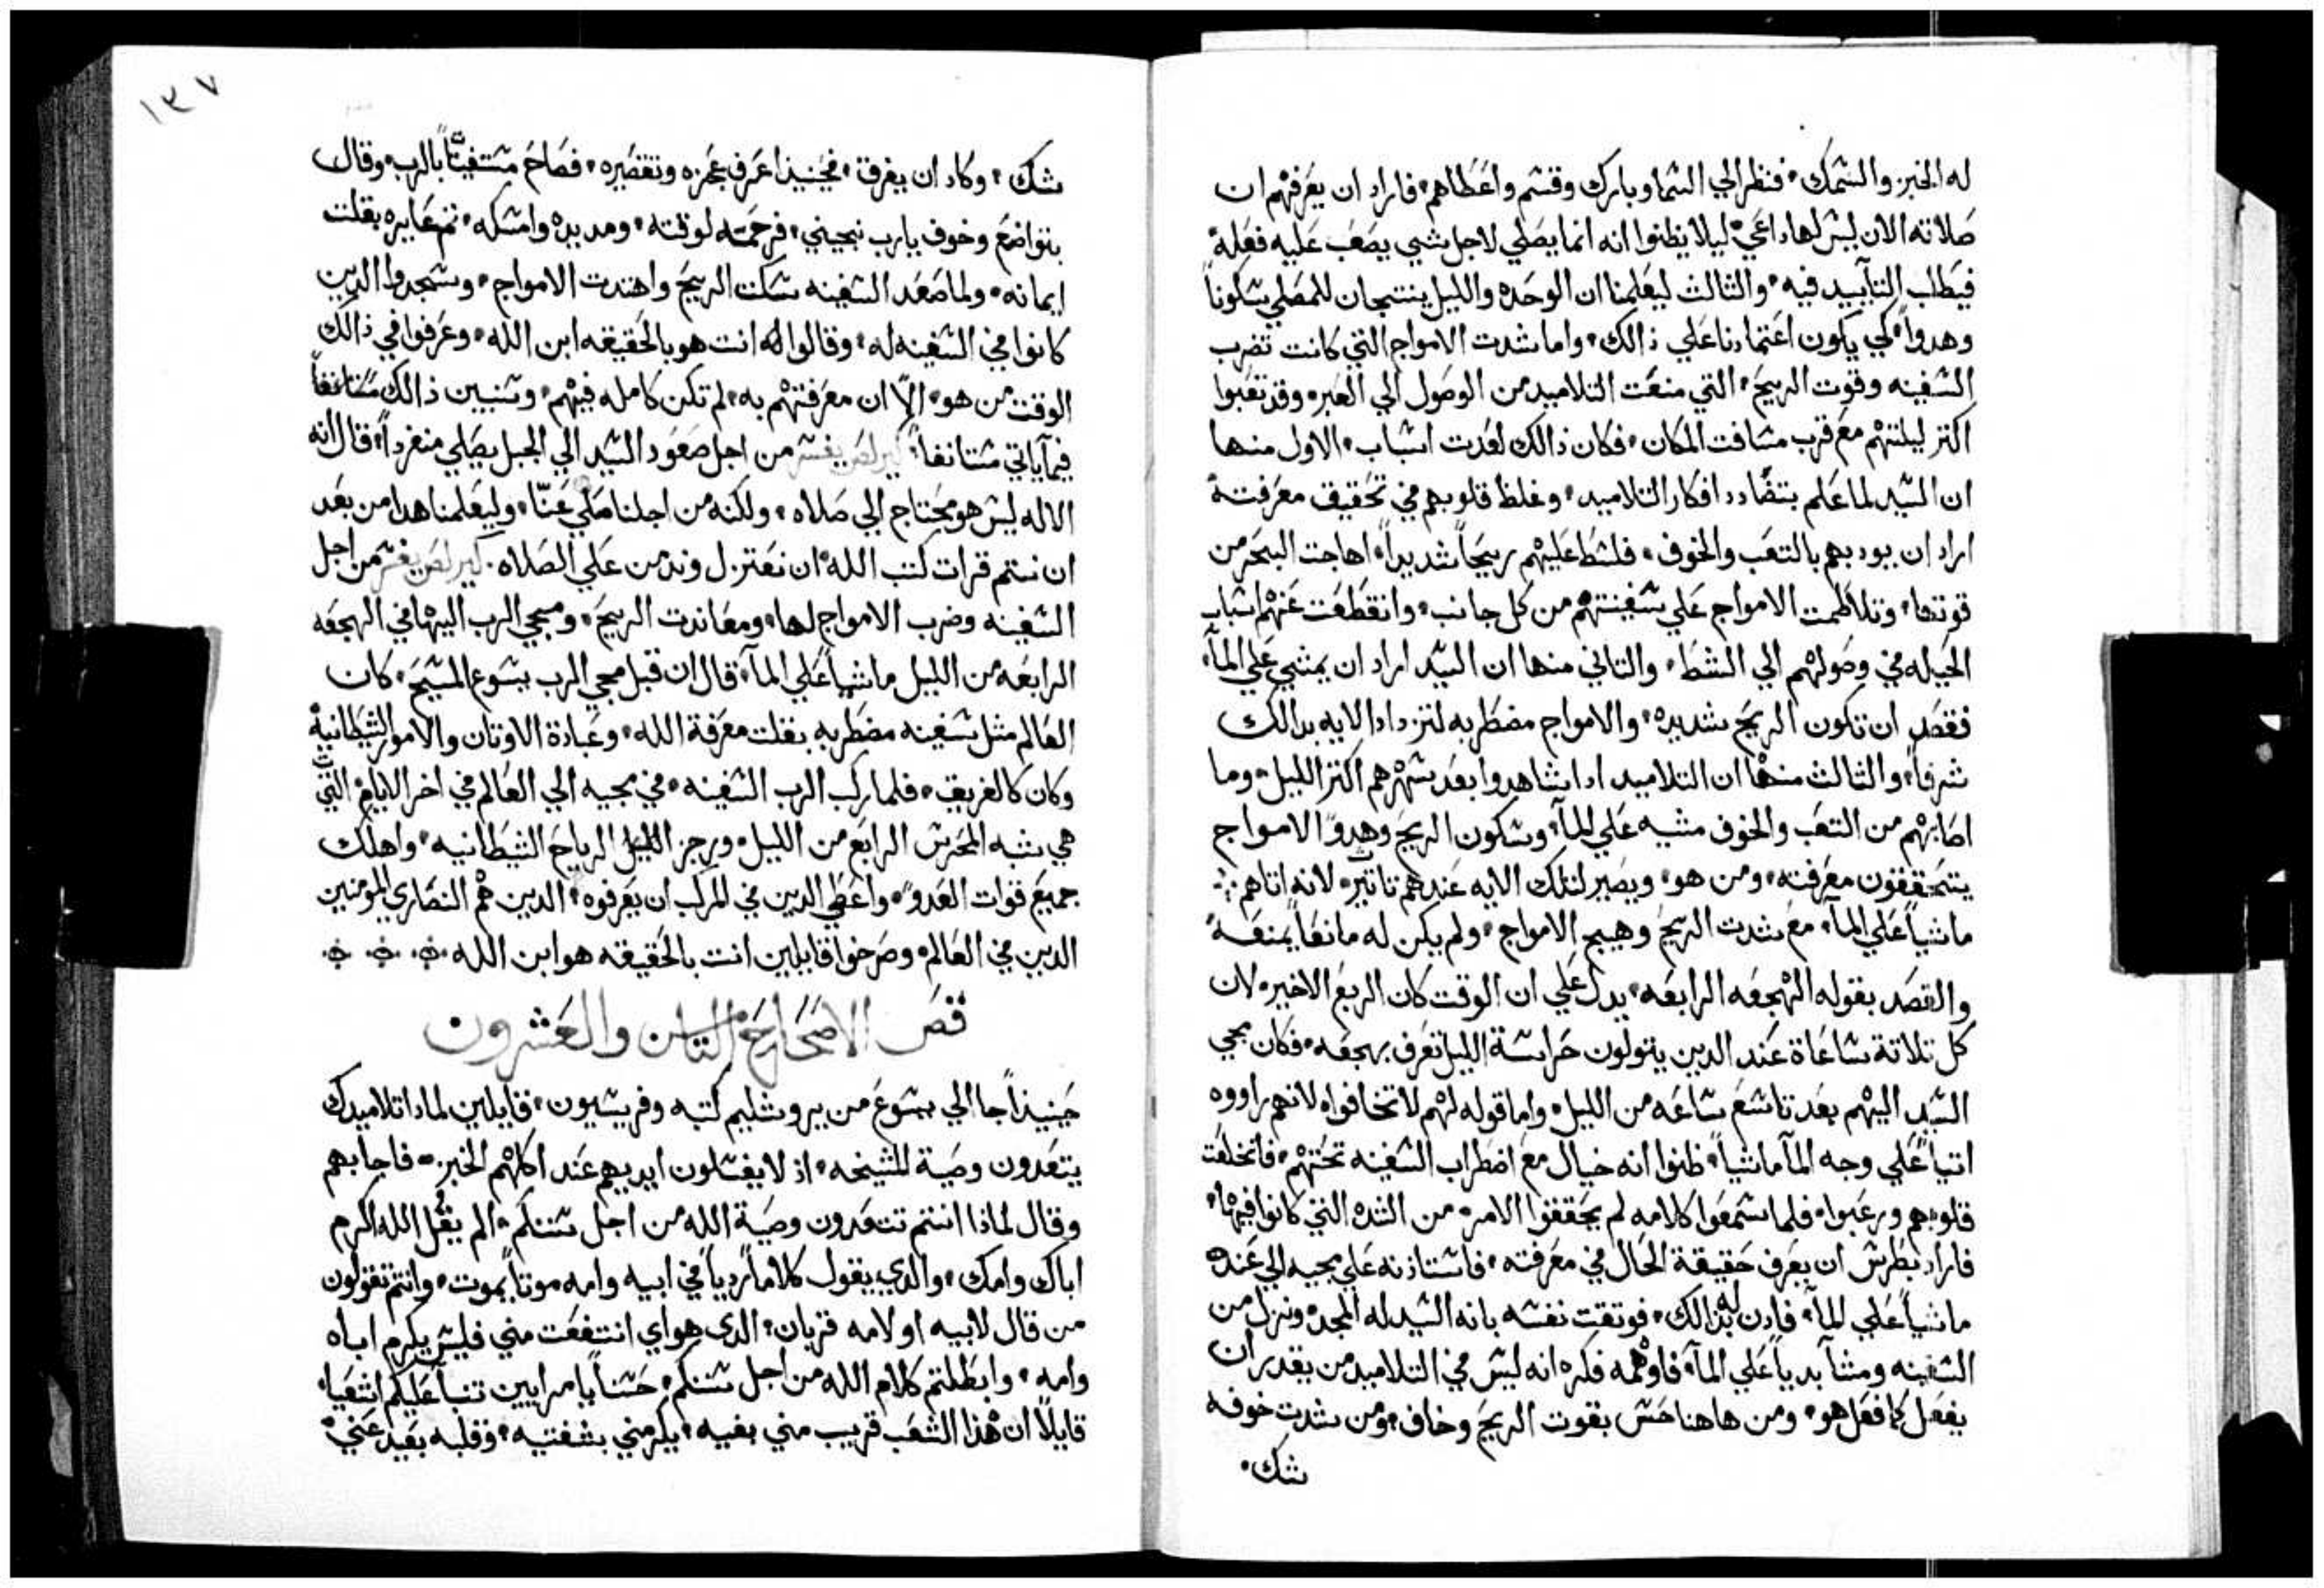 له الخبز والسمك، فنظر الي السما وبارك وقسم واعطاهم، فاراد ان يعرفهم ان
صلاته الان ليس لها داعي ليلا يظنوا انه انما يصلي لاجل شي يصعب عليه فعله
فيطلب التاييد فيه، والثالث ليعلمنا ان الوحده والليل ينتجان للمصلي سكوناً
وهدواً كي يكون اعتمادنا علي ذالك، واما شدت الامواج التي كانت تضرب
السفينه وقوت الريح، التي منعت التلاميد من الوصول الي العبر، وقد تعبوا
اكتر ليلتهم مع قرب مسافت المكان، فكان ذالك لعدت اسباب، الاول منها
ان السيد لما علم بتضادد افكار التلاميد، وغلظ قلوبهم في تحقيق معرفته
اراد ان يودبهم بالتعب والخوف، فلسط عليهم ريحاً شديداً، اهاجت البحر من
قوتها، وتلاطمت الامواج علي سفينتهم من كل جانب، وانقطعت عنهم اسباب
الحيله في وصولهم الي الشط، والتاني منها ان السيد اراد ان يمشي علي المآ،
فقصد ان تكون الريح شديده، والامواج مضطربه لتزداد الايه بدالك
شرفاً، والثالث منها ان التلاميد ادا شاهدوا بعد سهرهم اكتر الليل، وما
اصابهم من التعب والخوف مشيه علي المآ، وسكون الريح وهدوً الامواج
يتحققون معرفته، ومن هو، ويصير لتلك الايه عندهم تاتير، لانه اتاهم
ماشياً علي المآ، مع شدت الريح وهيج الامواج، ولم يكن له مانعاً يمنعه
والقصد بقوله الهجعه الرابعه، يدل علي ان الوقت كان الربع الاخير، لان
كل تلاتة ساعاة عند الدين يتولون حراسة الليل تعرف بهجعه، فكان مجي
السيد اليهم بعد تاسع ساعه من الليل، واما قوله لهم لا تخافوا، لانهم راووه
اتياً علي وجه المآ ماشياً، ظنوا انه خيال مع اضطراب السفينه تحتهم، فاتخلعت
قلوبهم ورعبوا، فلما سمعوا كلامه لم يحققوا الامر، من الشده التي كانوا فيها،
فاراد بطرس ان يعرف حقيقة الحال في معرفته، فاستاذنه علي مجيه الي عنده
ماشياً علي المآ، فادن له بدالك، فوتقت نفسه بانه السيد له المجد، ونزل من
السفينه ومشا بدياً علي المآ، فاوهمه فكره انه ليس في التلاميد من يقدر ان
يفعل كما فعل هو، ومن هاهنا حس بقوت الريح وخاف، ومن شدت خوفه
شك،
١٣٧
شك، وكاد ان يغرق، فحينيذ اعرف عجزه وتقصيره، فصاح مستغيتاً بالرب، وقال
بتواضع وخوف يارب نجيني، فرحمته لوقته، ومد يده وامسكه، تم عايره بقلت
ايمانه، ولما صعد السفينه سكت الريح واهتدت الامواج، وسجدوا الدين
كانوا في السفينه له، وقالوا له انت هو بالحقيقه ابن الله، وعرفوا في ذالك
الوقت من هو، الّا ان معرفتهم به، لم تكن كامله فيهم، وسنبين ذالك مستانفاً
فيما ياتي مستانفاً، كيرلص يفسر من اجل صعود السيد الي الجبل يصلي منفرداً، قال انه
الاله ليس هو محتاج الي صلاه، ولكنه من اجلنا صلي عنّا، وليعلمنا هدا من بعد
ان نتم قرات كتب الله، ان نعتزل وندمن علي الصلاه، كيرلص يفسر من اجل
السفينه وضرب الامواج لها، ومعاندت الريح، ومجي الرب اليها في الهجعه
الرابعه من الليل ماشياً علي المآ، قال ان قبل مجي الرب يسوع المسيح، كان
العالم مثل سفينه مضطربه بقلت معرفة الله، وعبادة الاوتان والامور الشيطانية
وكان كالغريق، فلما ركب الرب السفينه، في مجيه الي العالم في اخر الايام، التي
هي شبه المحرس الرابع من الليل، ورجز الرياح الشيطانيه، واهلك
جميع قوات العدوً، واعطي الدين في المركب ان يعرفوه، الدين هم النصاري المومنين
الدين في العالم، وصرخوا قايلين انت بالحقيقه هو ابن الله
فص الاصحاح التامن والعشرون
حينيذاً جا الي يسوع من يروشليم كتبه وفريسيون، قايلين لمادا تلاميدك
يتعدون وصية المشيخه، اذ لا يغسلون ايديهم عند اكلهم الخبز، فاجابهم
وقال لماذا انتم تتعدون وصية الله من اجل سننكم، الم يقل الله اكرم
اباك وامك، والدي يقول كلاماً ردياً في ابيه وامه موتاً يموت، وانتم تقولون
من قال لابيه او لامه قربان، الدي هو اي انتفعت مني فليس يكرم اباه
وامه، وابطلتم كلام الله من اجل سننكم، حسناً يا مرايين تنبا عليكم اشعيا،
قايلاً ان هذا الشعب قريب مني بفيه، يكرمني بشفتيه، وقلبه بعيد عني